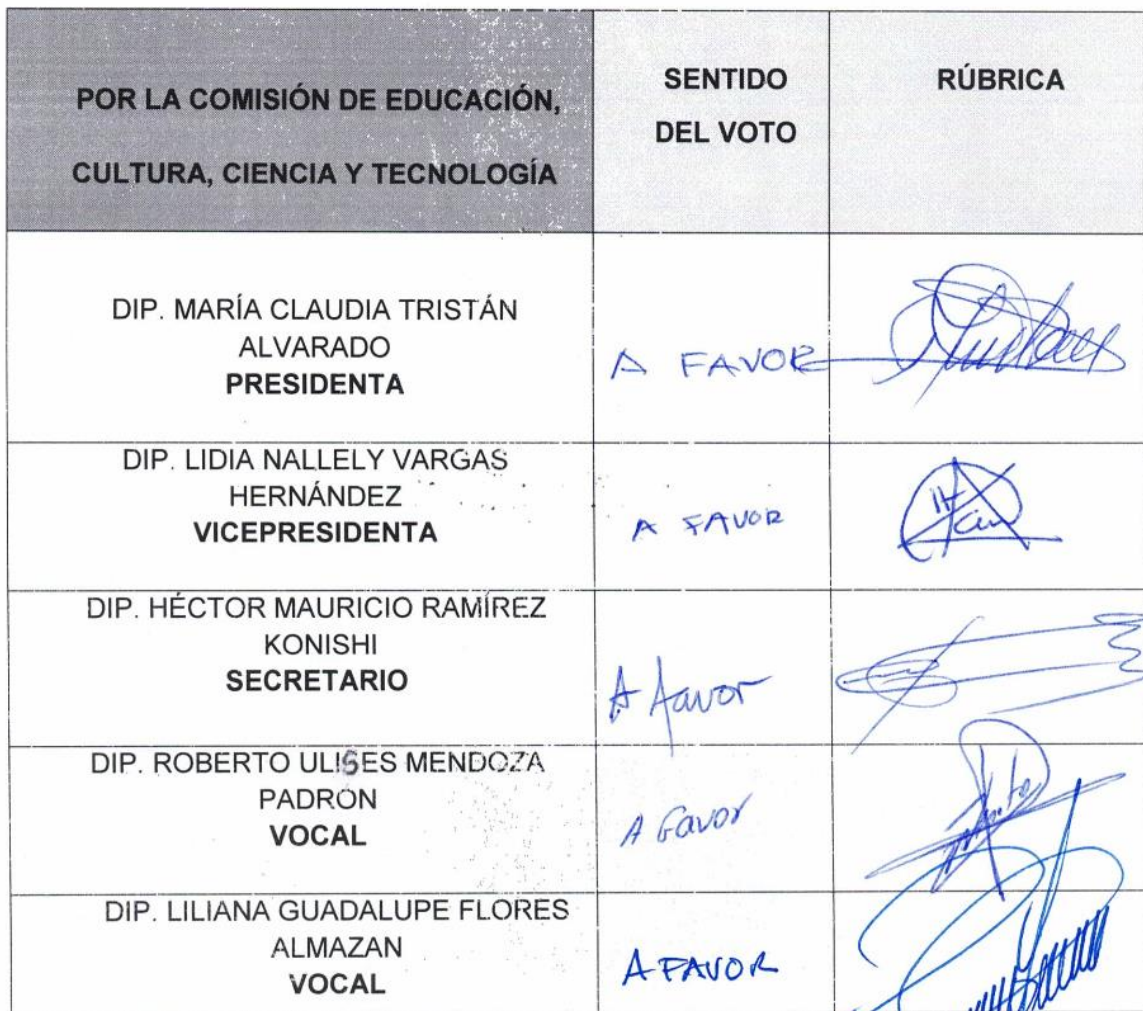 POR LA COMISIÓN DE EDUCACIÓN,
CULTURA, CIENCIA Y TECNOLOGÍA
SENTIDO
DEL VOTO
RÚBRICA
DIP. MARÍA CLAUDIA TRISTÁN
ALVARADO
PRESIDENTA
A FAVOR
DIP. LIDIA NALLELY VARGAS
HERNÁNDEZ
VICEPRESIDENTA
A FAVOR
DIP. HÉCTOR MAURICIO RAMÍREZ
KONISHI
SECRETARIO
A favor
DIP. ROBERTO ULISES MENDOZA
PADRÓN
VOCAL
A Favor
DIP. LILIANA GUADALUPE FLORES
ALMAZAN
VOCAL
A FAVOR